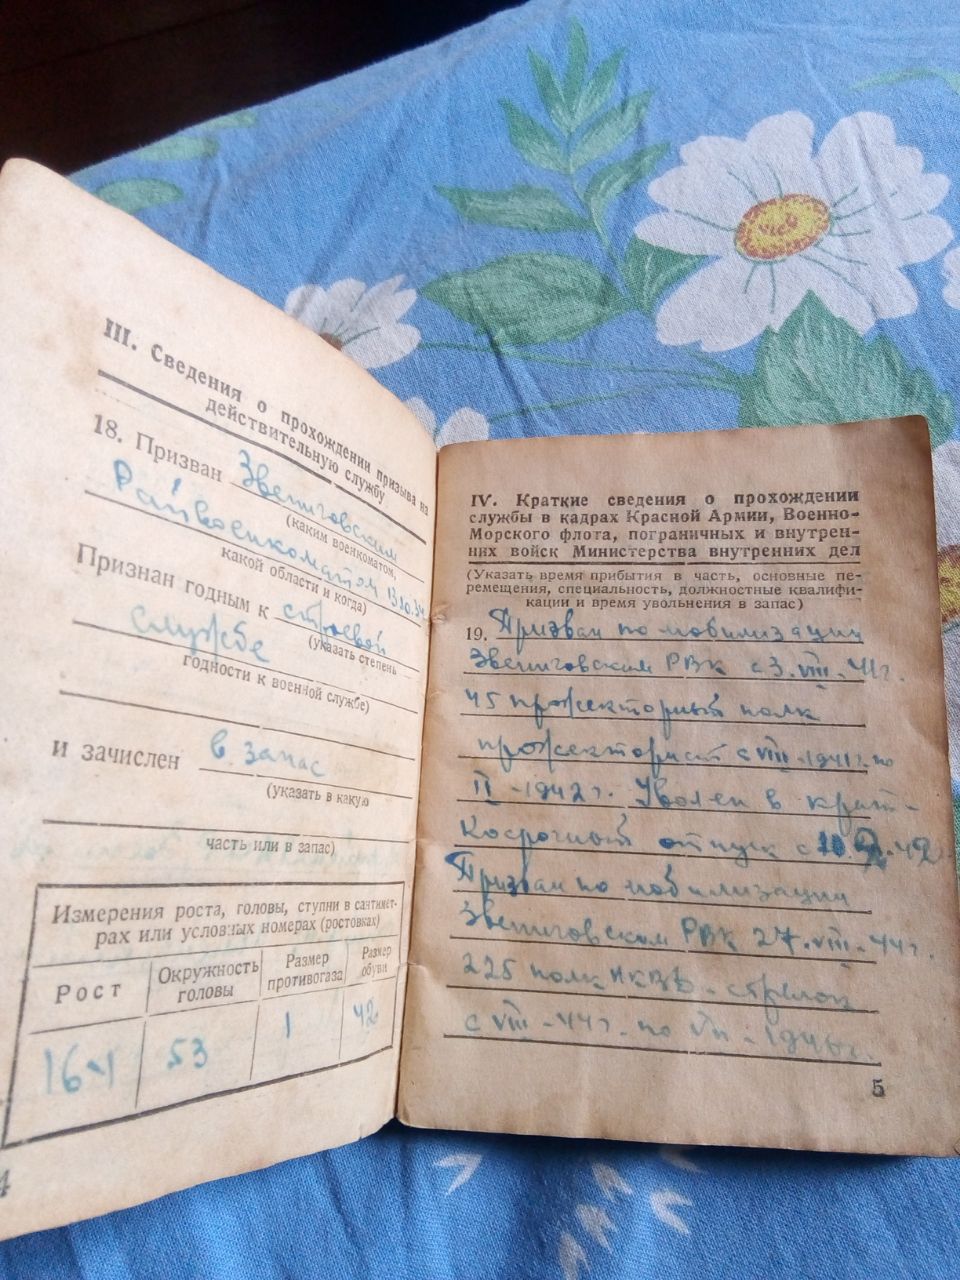 III. Сведения о прохождении призыва на
действительную службу
18. Призван Звениговским
(каким военкоматом,
Райвоенкоматом 1310.34
какой области и когда)
Признан годным к строевой
(указать степень
службе
годности к военной службе)
и зачислен в запас
(указать в какую
часть или в запас)
Измерения роста, головы, ступни в сантимет-
рах или условных номерах (ростовках)
Рост
Окружность
головы
Размер
противогаза
Размер
обуви
53
1
42
4
IV. Краткие сведения о прохождении
службы в кадрах Красной Армии, Военно-
Морского флота, пограничных и внутрен-
них войск Министерства внутренних дел
(Указать время прибытия в часть, основные пе-
ремещения, специальность, должностные квалифи-
кации и время увольнения в запас)
19. Призван по мобилизации
Звениговском РВК с 3.VIII-41г.
45 прожекторный полк
прожекторист с VIII-1941г. по
II-1942г. Уволен в крат-
косрочный отпуск с 42
Призван по мобилизации
Звениговском РВК 27.VIII-44г.
225 полк НКВД - стрелок
с VIII-44г. по VII-1946г.
5